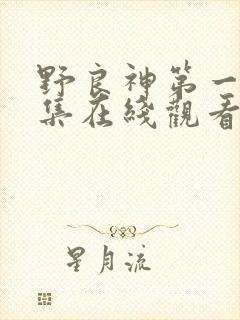 野良神第一
集在綫觀看
星月流